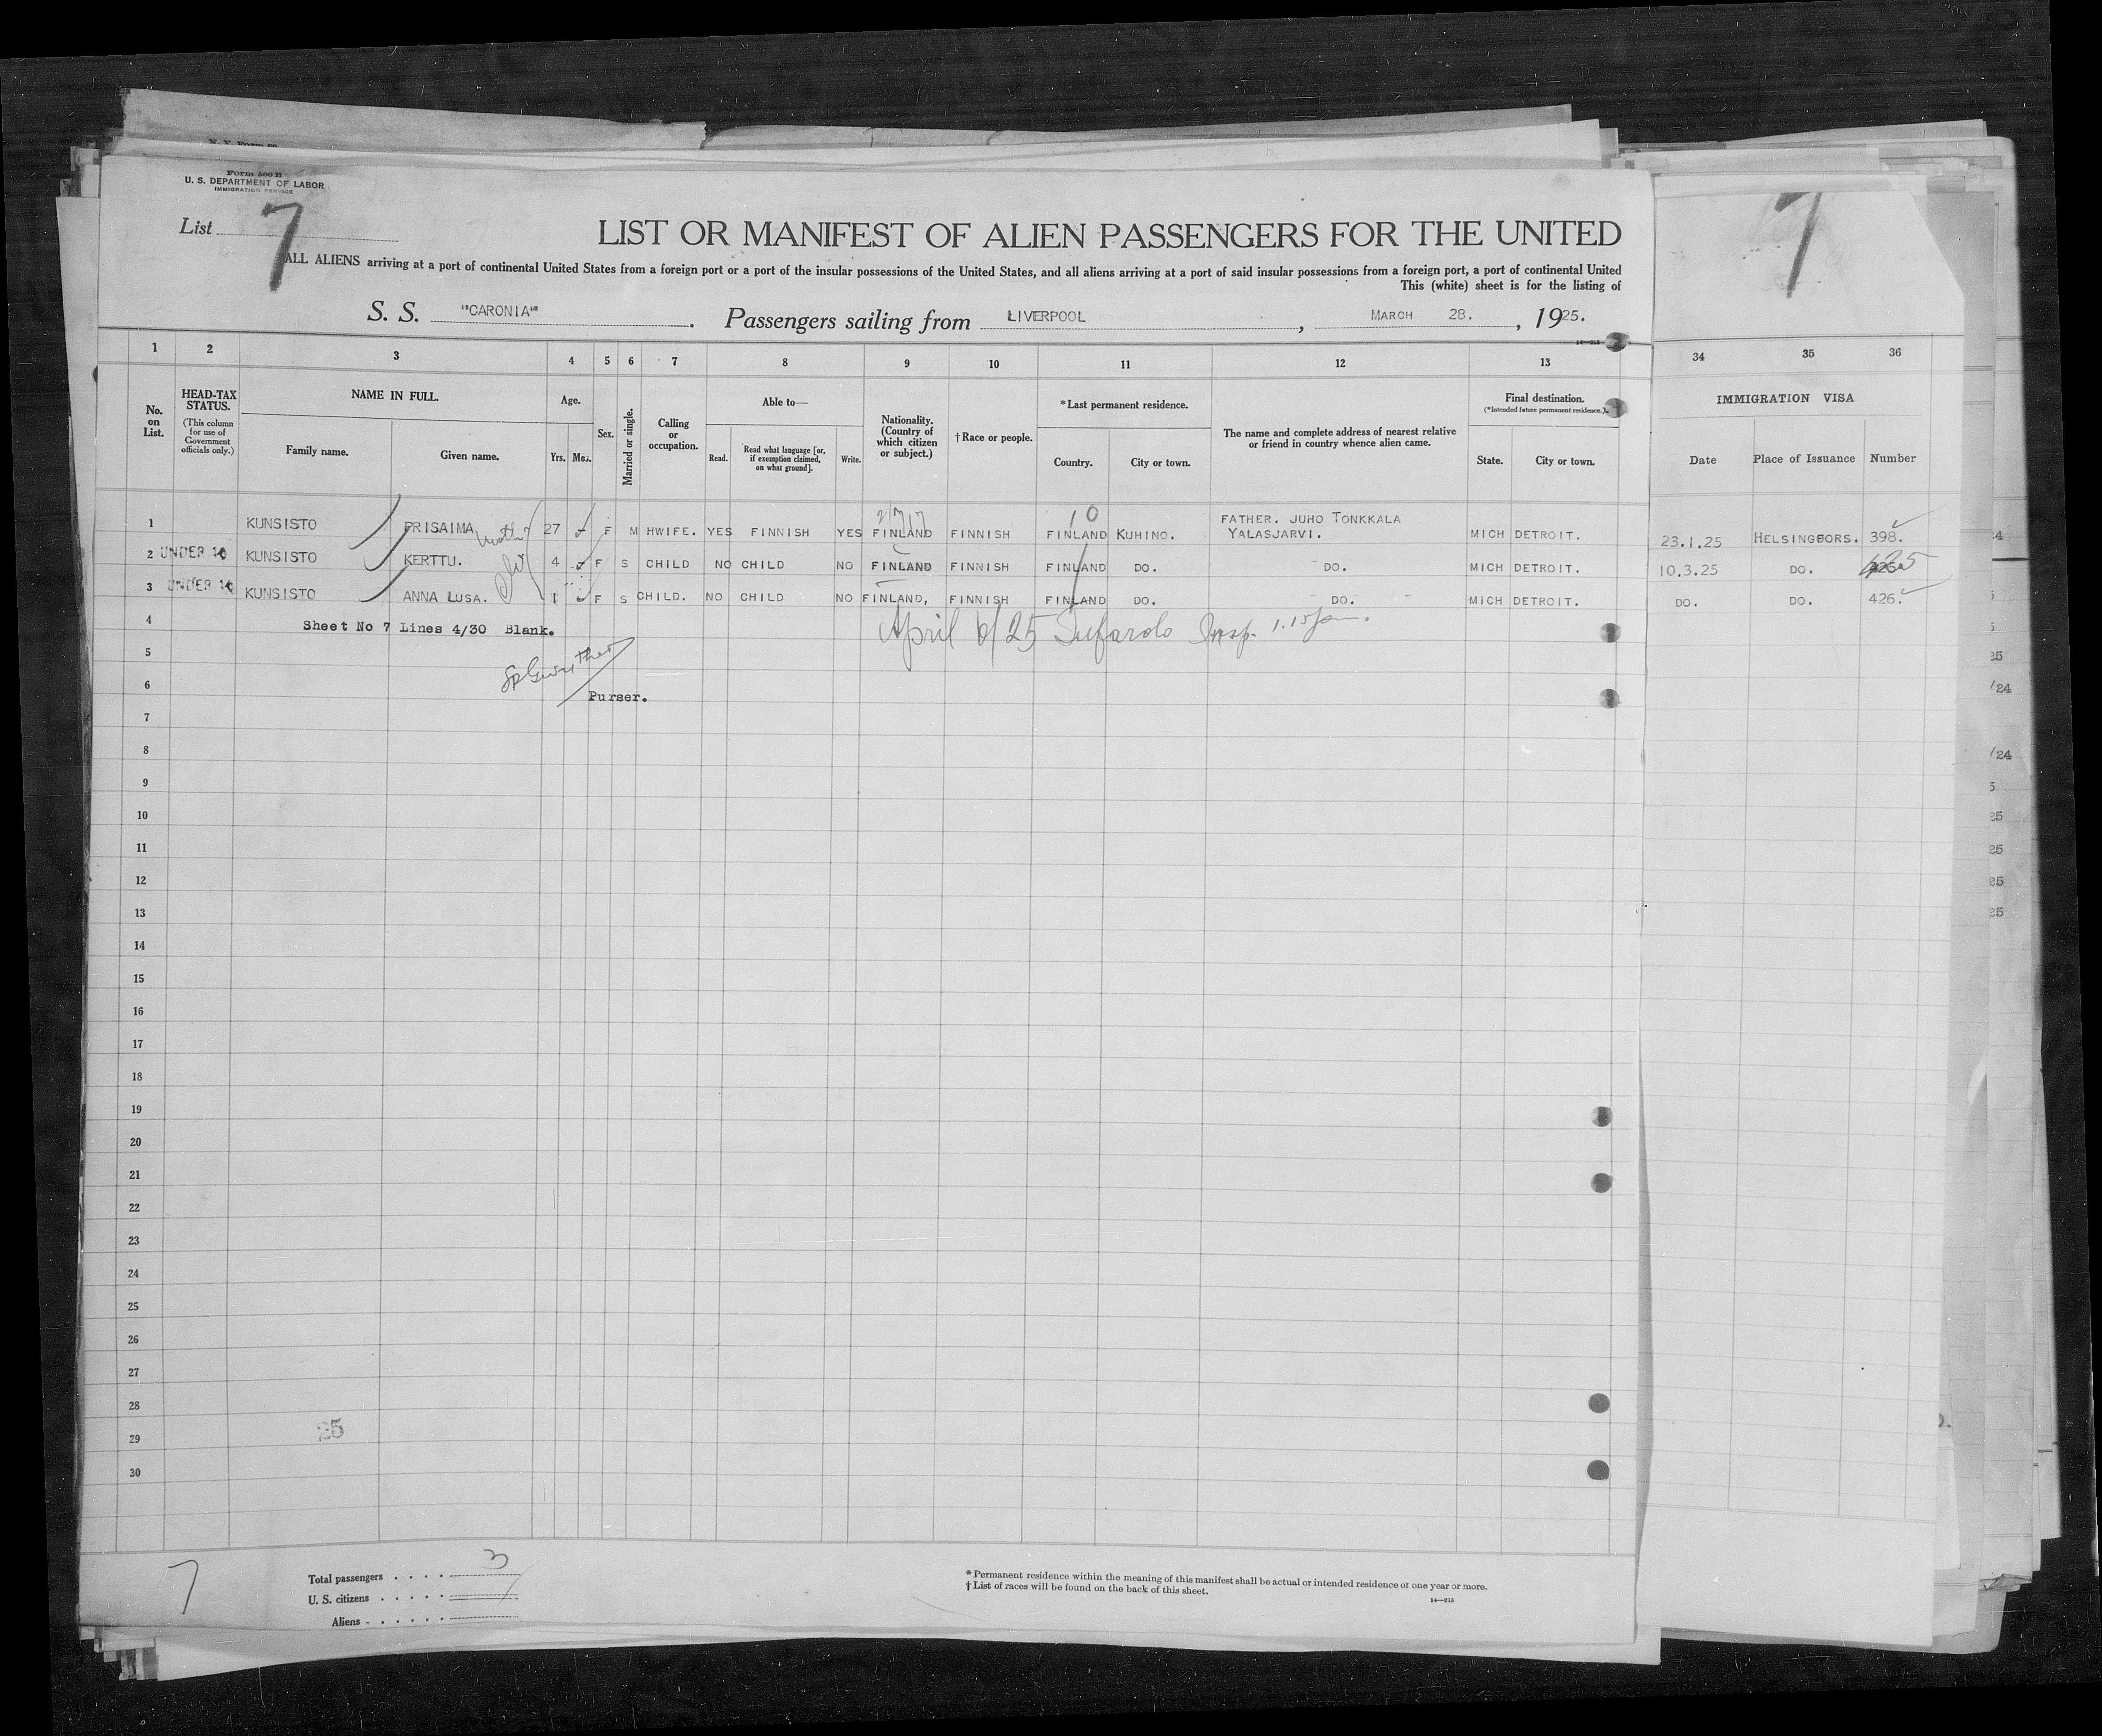 Form 500 B
U. S. DEPARTMENT OF LABOR
IMMIGRATION SERVICE
List 7
7
LIST OR MANIFEST OF ALIEN PASSENGERS FOR THE UNITED
ALL ALIENS arriving at a port of continental United States from a foreign port or a port of the insular possessions of the United States, and all aliens arriving at a port of said insular possessions from a foreign port, a port of continental United
This (white) sheet is for the listing of
S. S. "CARONIA" . Passengers sailing from LIVERPOOL , MARCH 28. , 1925.
1 2 3 4 5 6 7 8 9 10 11 12 13 34 35 36
No. on List.
HEAD-TAX STATUS.
(This column for use of Government officials only.)
NAME IN FULL.
Family name. Given name.
Age.
Yrs. Mos.
Sex.
Married or single.
Calling or occupation.
Able to—
Read. Read what language [or, if exemption claimed, on what ground]. Write.
Nationality. (Country of which citizen or subject.)
† Race or people.
*Last permanent residence.
Country. City or town.
The name and complete address of nearest relative or friend in country whence alien came.
Final destination.
(*Intended future permanent residence.)
State. City or town.
IMMIGRATION VISA
Date Place of Issuance Number
10
FATHER. JUHO TONKKALA
1 KUNSISTO PRISAIMA 27 F M HWIFE. YES FINNISH YES FINLAND FINNISH FINLAND KUHINO. YALASJARVI. MICH DETROIT. 23.1.25 HELSINGBORS. 398.
2 UNDER KUNSISTO KERTTU. 4 F S CHILD NO CHILD NO FINLAND FINNISH FINLAND DO. DO. MICH DETROIT. 10.3.25 DO. 425
3 UNDER KUNSISTO ANNA LUSA. 1 F S CHILD. NO CHILD NO FINLAND, FINNISH FINLAND DO. DO. MICH DETROIT. DO. DO. 426.
4 Sheet No 7 Lines 4/30 Blank. April 6/25 Insp. 1.15 pm.
5
6 Purser.
7
8
9
10
11
12
13
14
15
16
17
18
19
20
21
22
23
24
25
26
27
28
29 25
30
7
Total passengers 3
U. S. citizens
Aliens
* Permanent residence within the meaning of this manifest shall be actual or intended residence of one year or more.
† List of races will be found on the back of this sheet.
14—213